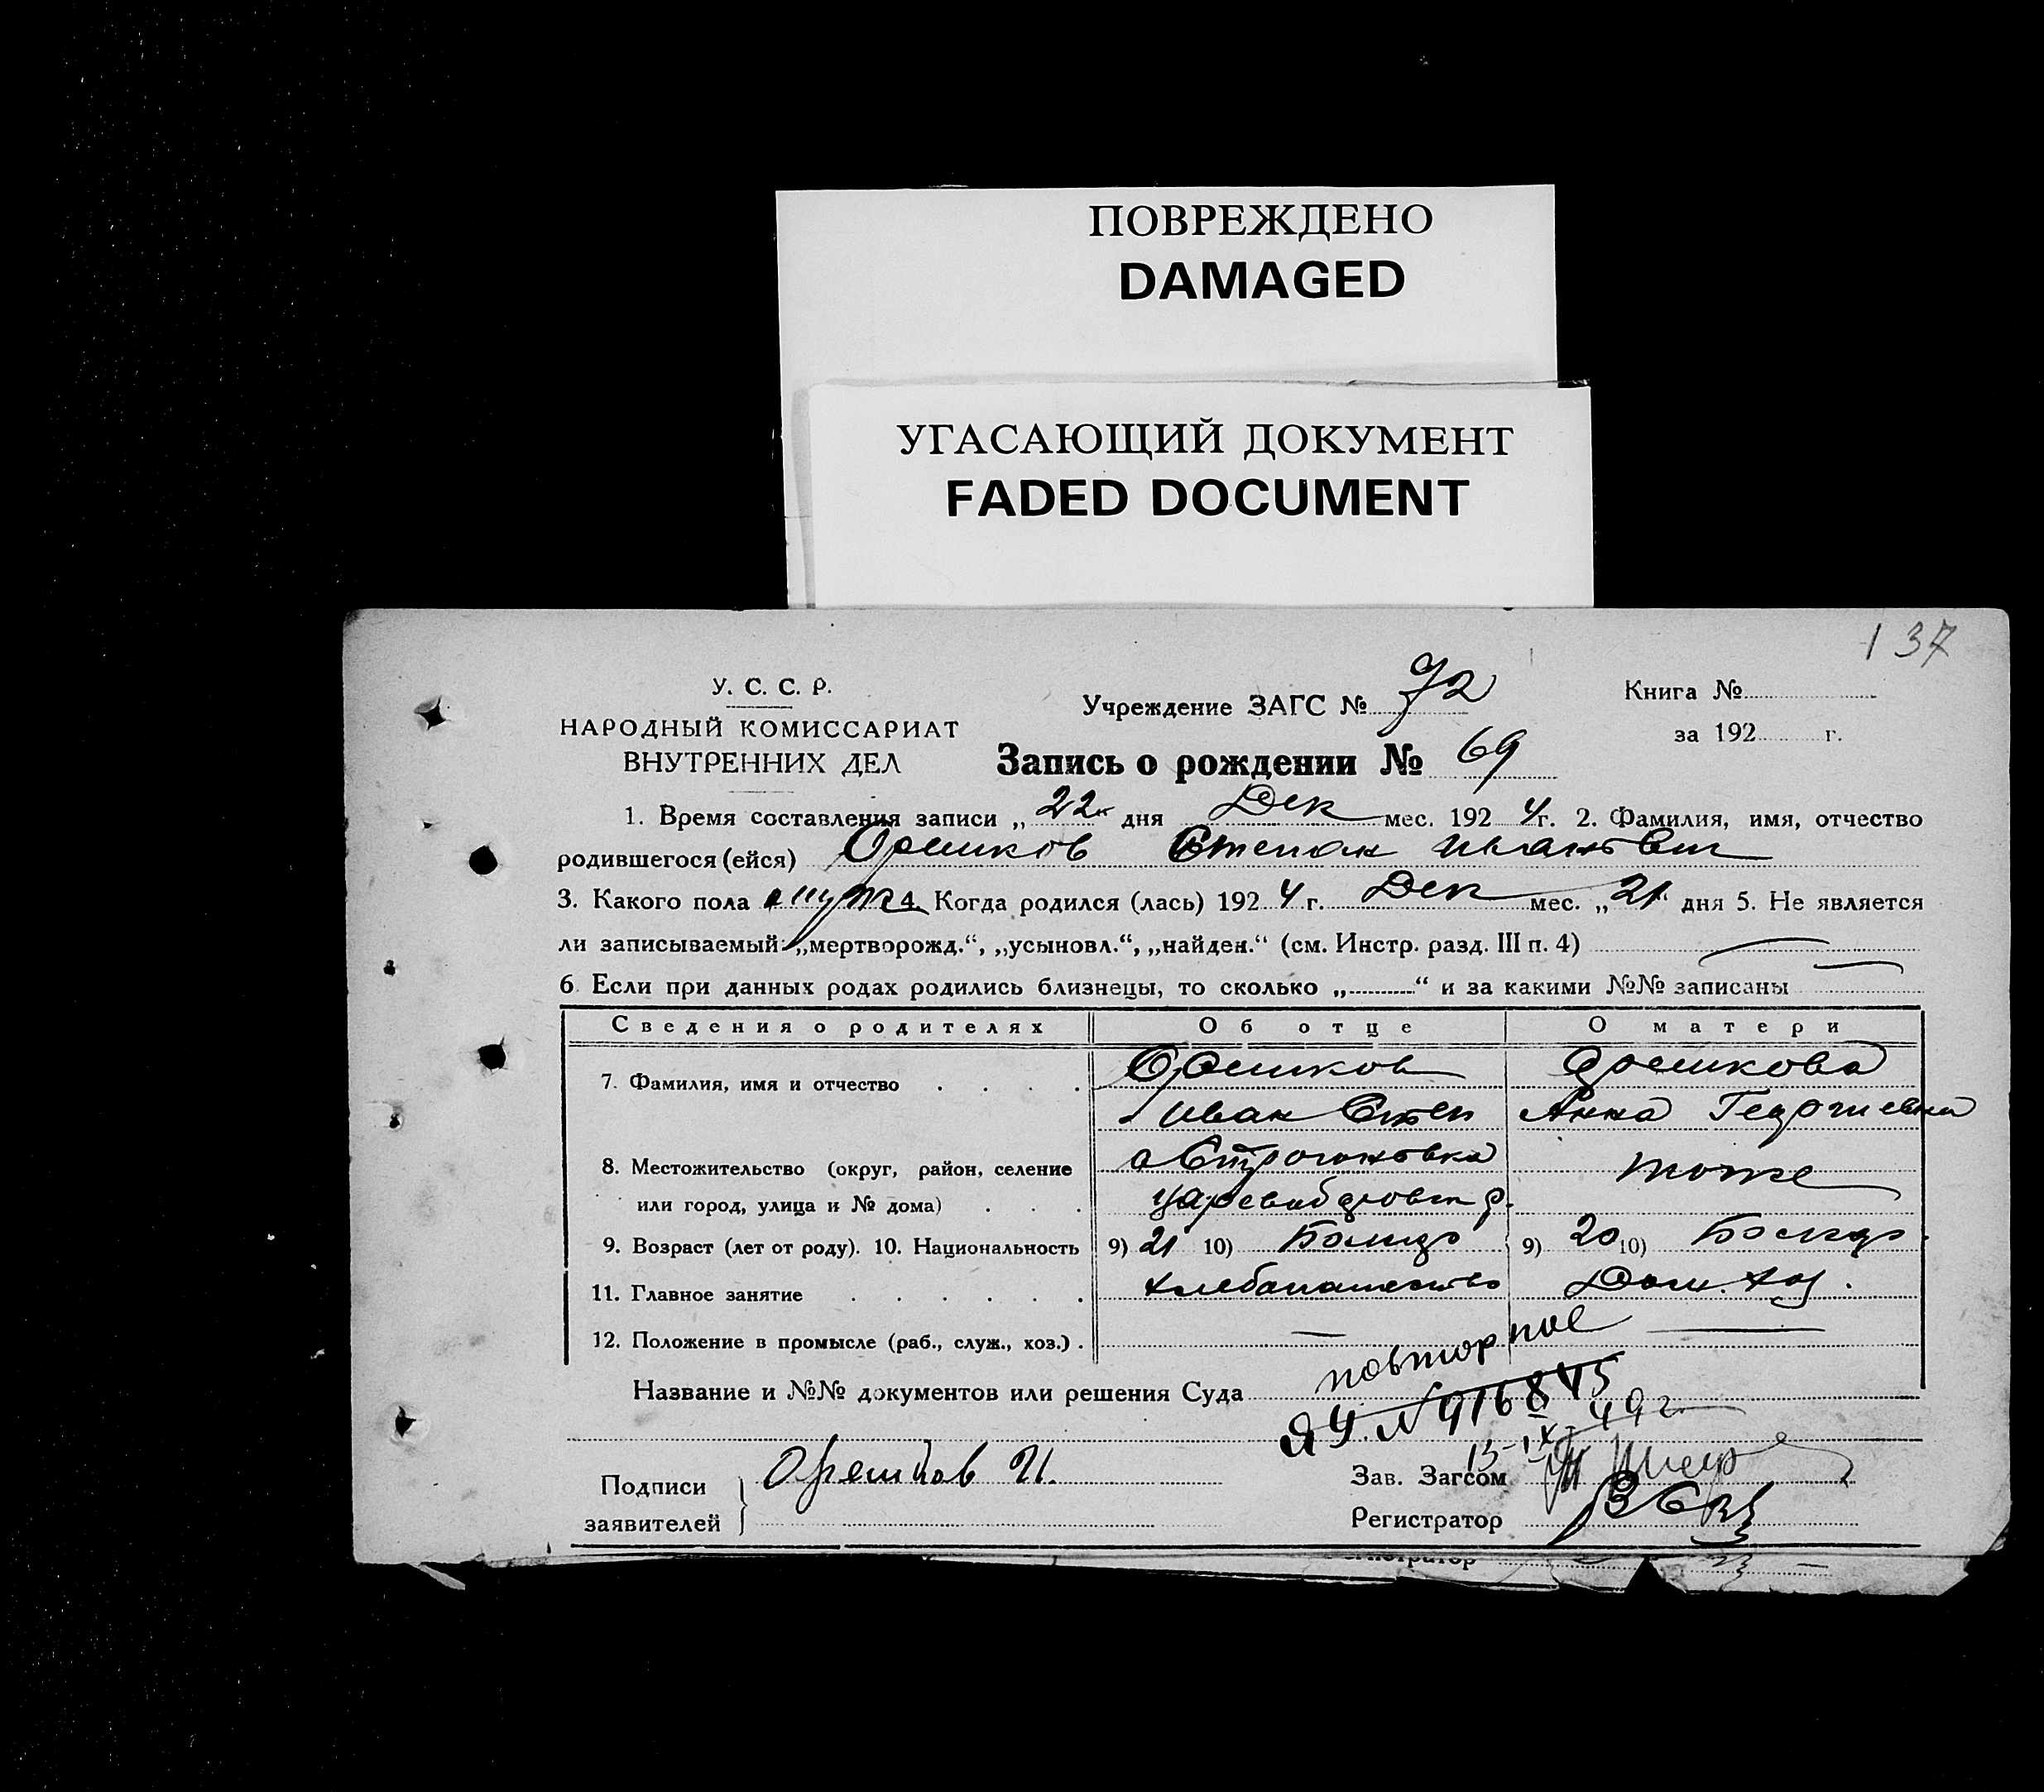 ПОВРЕЖДЕНО
DAMAGED
УГАСАЮЩИЙ ДОКУМЕНТ
FADED DOCUMENT
137
У. С. С. Р.
НАРОДНЫЙ КОМИССАРИАТ
ВНУТРЕННИХ ДЕЛ
Учреждение ЗАГС № 72
Книга №
за 192 г.
Запись о рождении № 69
1. Время составления записи „22" дня Дек мес. 1924г. 2. Фамилия, имя, отчество
родившегося (ейся) Орешков Степан Иванович
3. Какого пола муж 4. Когда родился (лась) 1924 г. Дек мес. „21" дня 5. Не является
ли записываемый: „мертворожд.“, „усыновл.“, „найден.“ (см. Инстр. разд. III п. 4)
6. Если при данных родах родились близнецы, то сколько „ “ и за какими №№ записаны
Сведения о родителях Об отце О матери
7. Фамилия, имя и отчество Орешков Орешкова
Иван Степ Анна Георгиевна
8. Местожительство (округ, район, селение Строгоновка тоже
или город, улица и № дома) р.
9. Возраст (лет от роду). 10. Национальность 9) 21 10) 9) 20 10)
11. Главное занятие хлебопашество Дом. хоз.
12. Положение в промысле (раб., служ., хоз.) — —
повторное
Название и №№ документов или решения Суда
ЯЧ № 916845
13-IX-49г.
Подписи Орешков И. Зав. Загсом
заявителей Регистратор
Регистратор